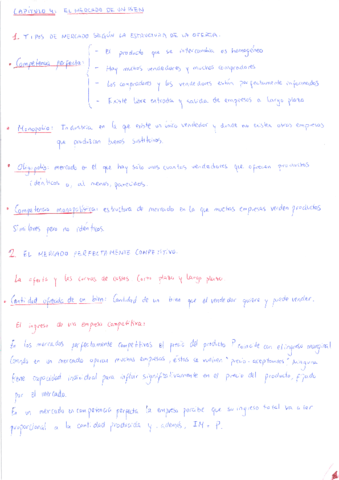 CAPÍTULO 4: EL MERCADO DE UN BIEN
1. TIPOS DE MERCADO SEGÚN LA ESTRUCTURA DE LA OFERTA.
- El producto que se intercambia es homogéneo
• Competencia perfecta: - Hay muchos vendedores y muchos compradores
- Los compradores y los vendedores están perfectamente informados
- Existe libre entrada y salida de empresas a largo plazo
• Monopolio: Industria en la que existe un único vendedor y donde no existen otras empresas
que produzcan bienes sustitutivos.
• Oligopolio: mercado en el que hay sólo unos cuantos vendedores que ofrecen productos
idénticos o, al menos, parecidos.
• Competencia monopolística: estructura de mercado en la que muchas empresas venden productos
similares pero no idénticos.
2. EL MERCADO PERFECTAMENTE COMPETITIVO.
La oferta y las curvas de costes (corto plazo y largo plazo)
• Cantidad ofrecida de un bien: Cantidad de un bien que el vendedor quiere y puede vender.
El ingreso de una empresa competitiva:
En los mercados perfectamente competitivos el precio del producto coincide con el ingreso marginal
en un mercado operan muchas empresas, éstas se vuelven "precio-aceptantes" ninguna
tiene capacidad individual para influir significativamente en el precio del producto, fijado
por el mercado.
En un mercado en competencia perfecta la empresa percibe que su ingreso total va a ser
proporcional a la cantidad producida y, además, IM = P.